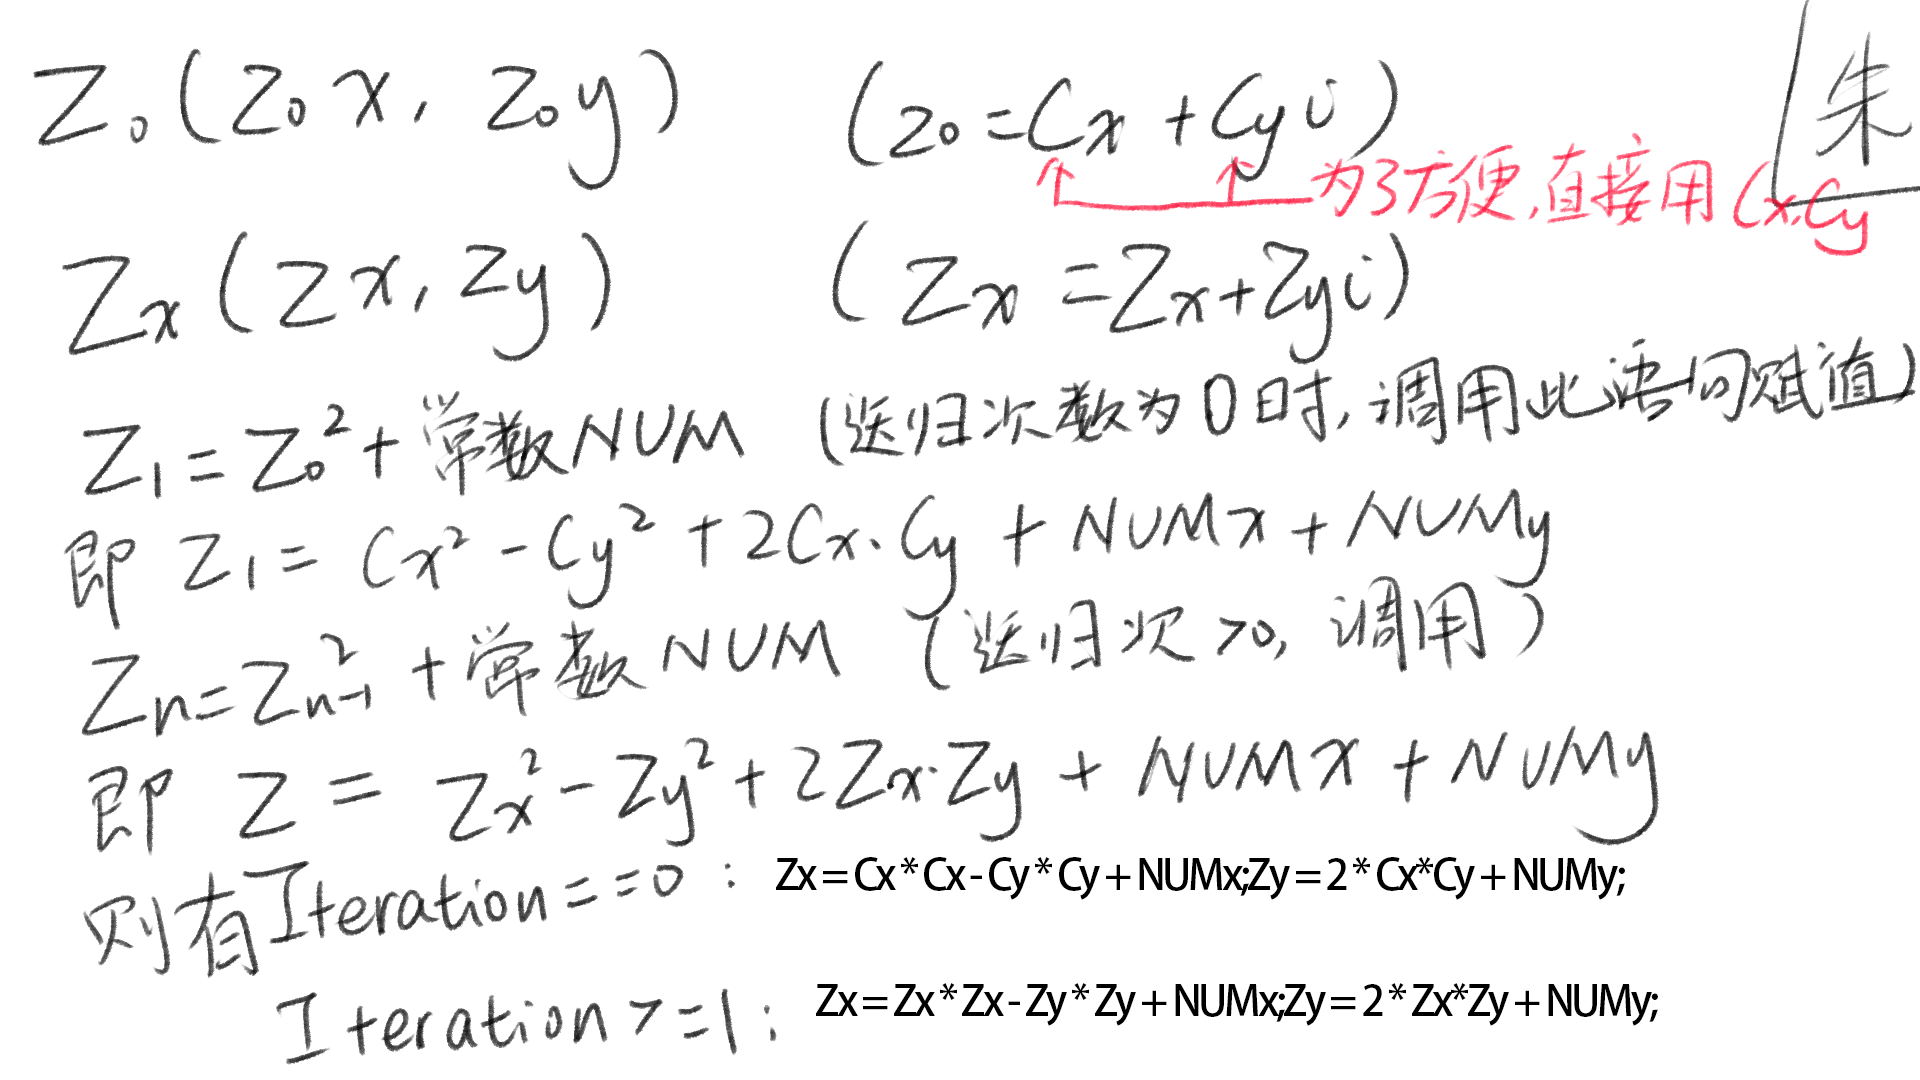 Z₀(Z₀x, Z₀y) (Z₀=Cx+Cyi) 朱
为了方便,直接用Cx,Cy
Zx(Zx, Zy) (Zx=Zx+Zyi)
Z₁=Z₀²+常数NUM (递归次数为0时,调用此语句赋值)
即 Z₁= Cx²-Cy²+2Cx·Cy+NUMx+NUMy
Zn=Zn-1²+常数NUM (递归次>0, 调用)
即 Z = Zx²-Zy²+2Zx·Zy+NUMx+NUMy
则有Iteration==0: Zx=Cx*Cx-Cy*Cy+NUMx;Zy=2*Cx*Cy+NUMy;
Iteration>=1: Zx=Zx*Zx-Zy*Zy+NUMx;Zy=2*Zx*Zy+NUMy;